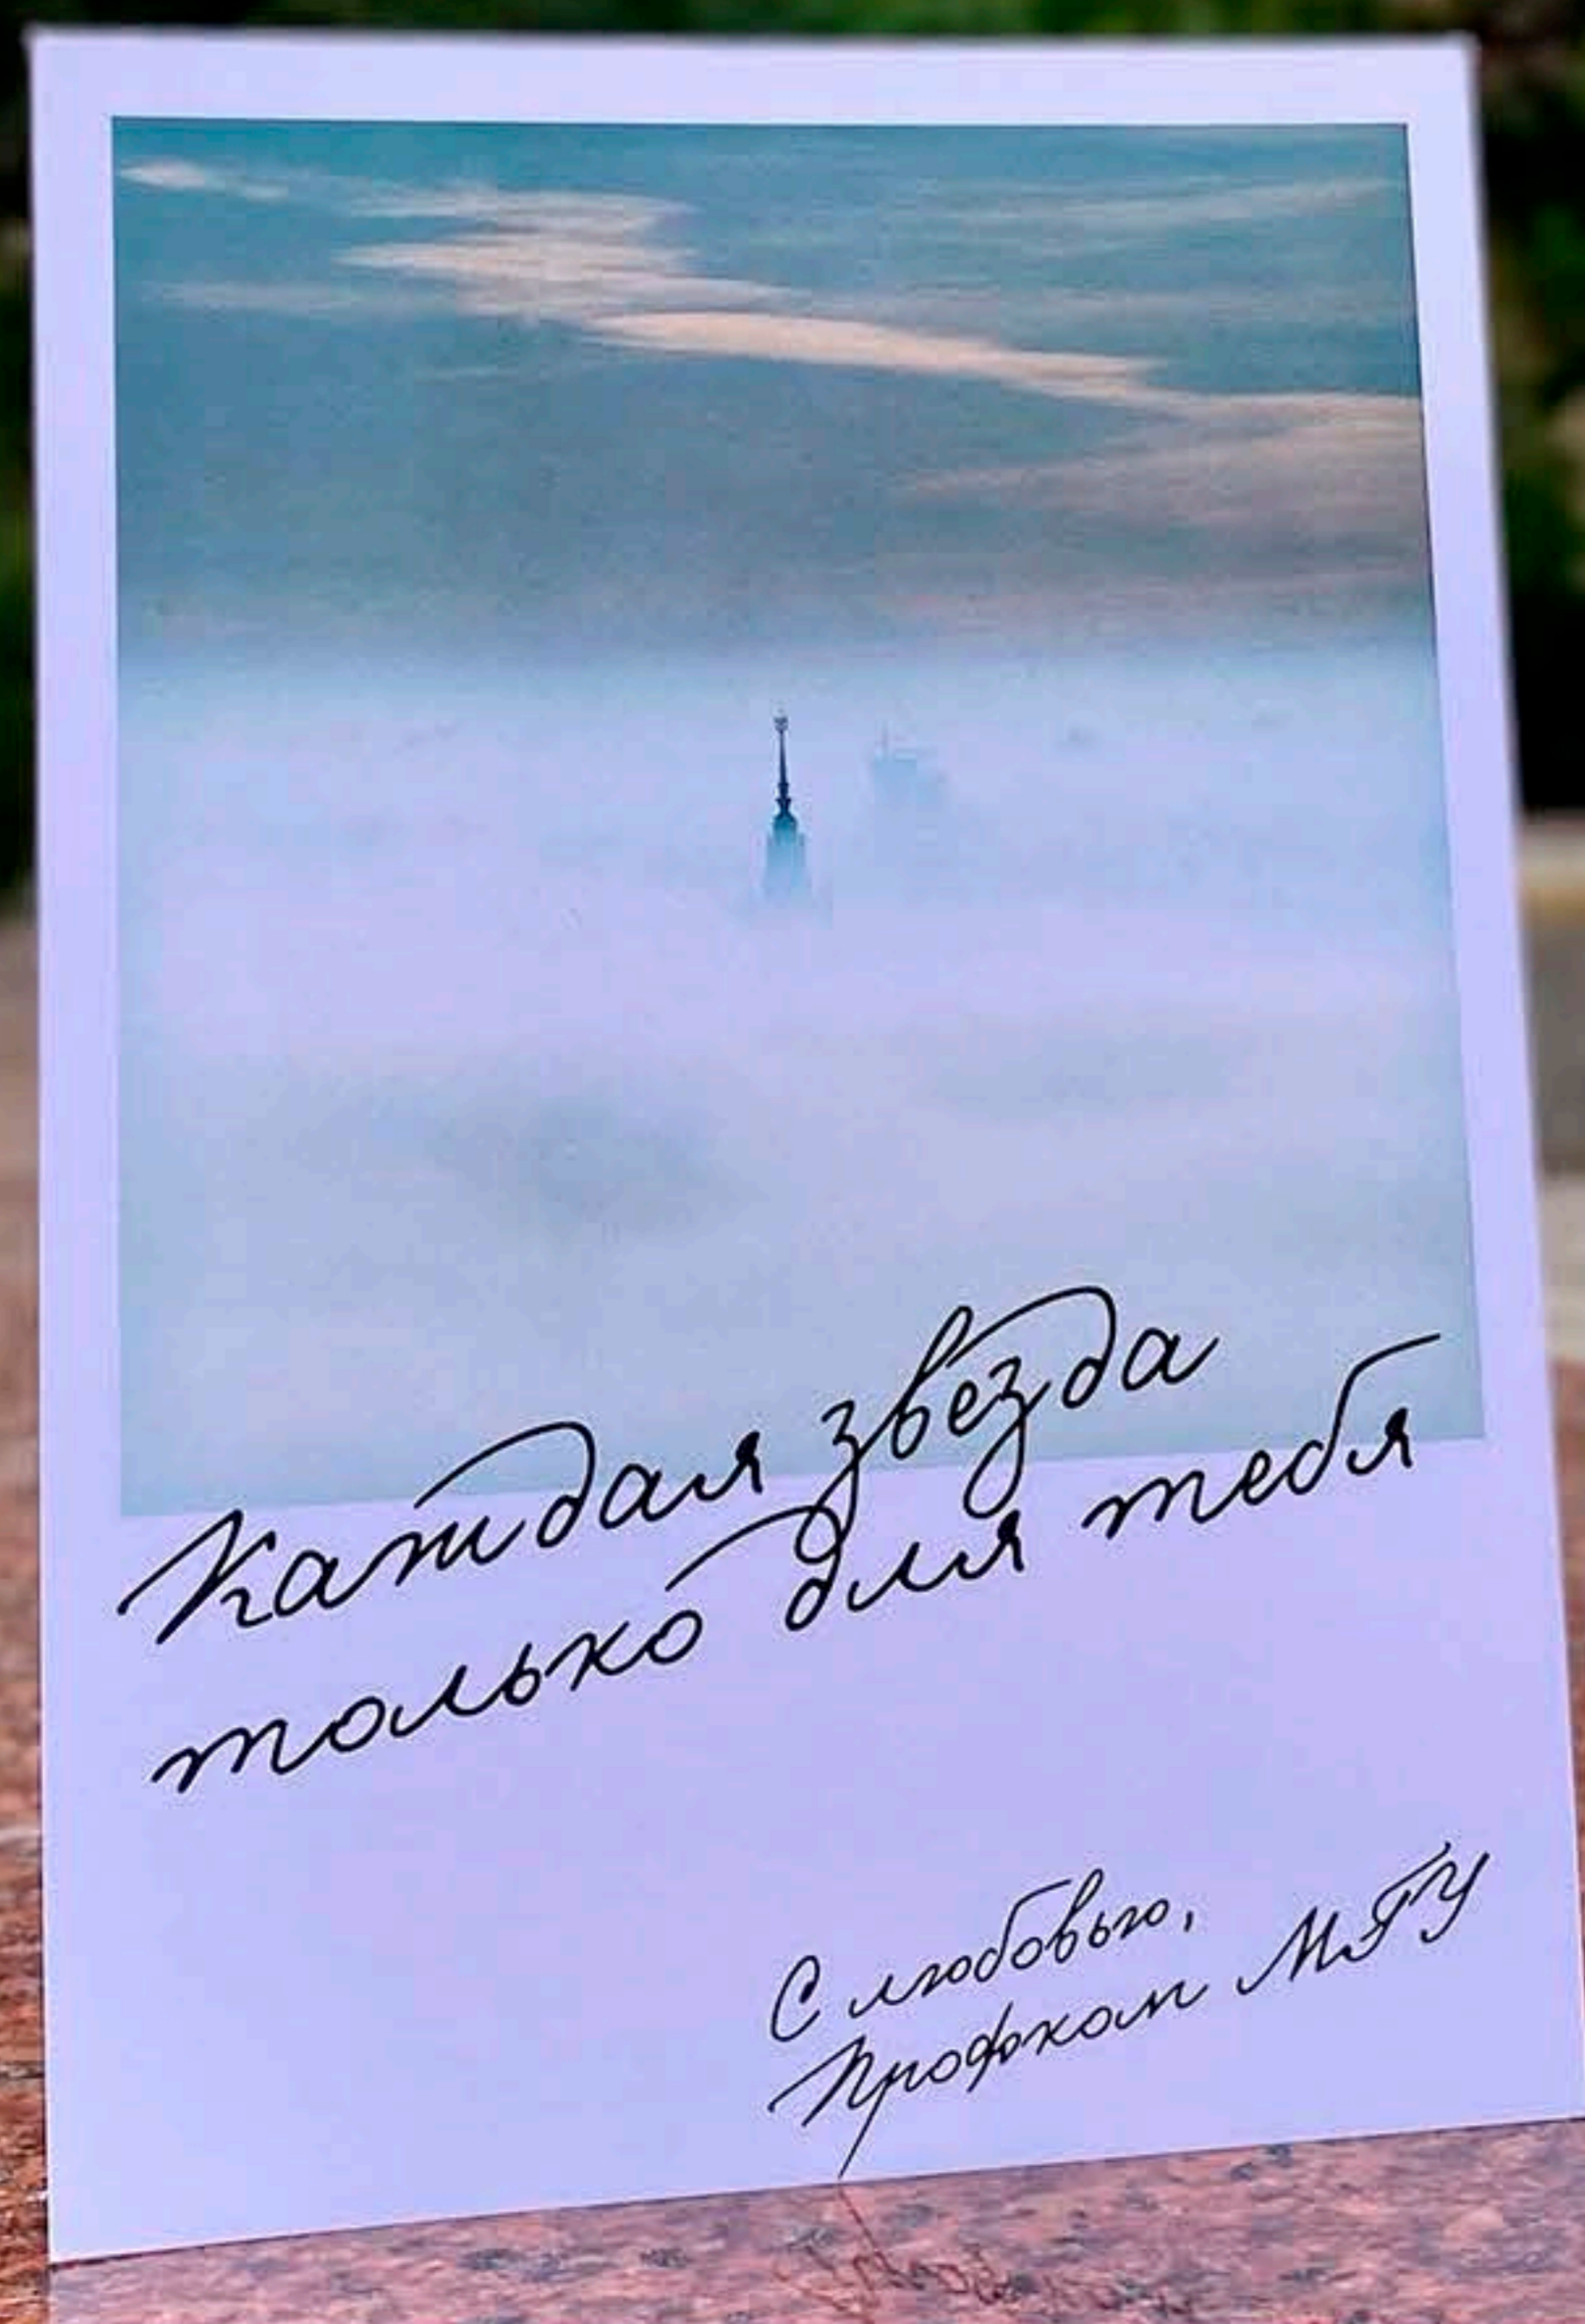 Каждая звезда
только для тебя
С любовью,
Профком МГУ